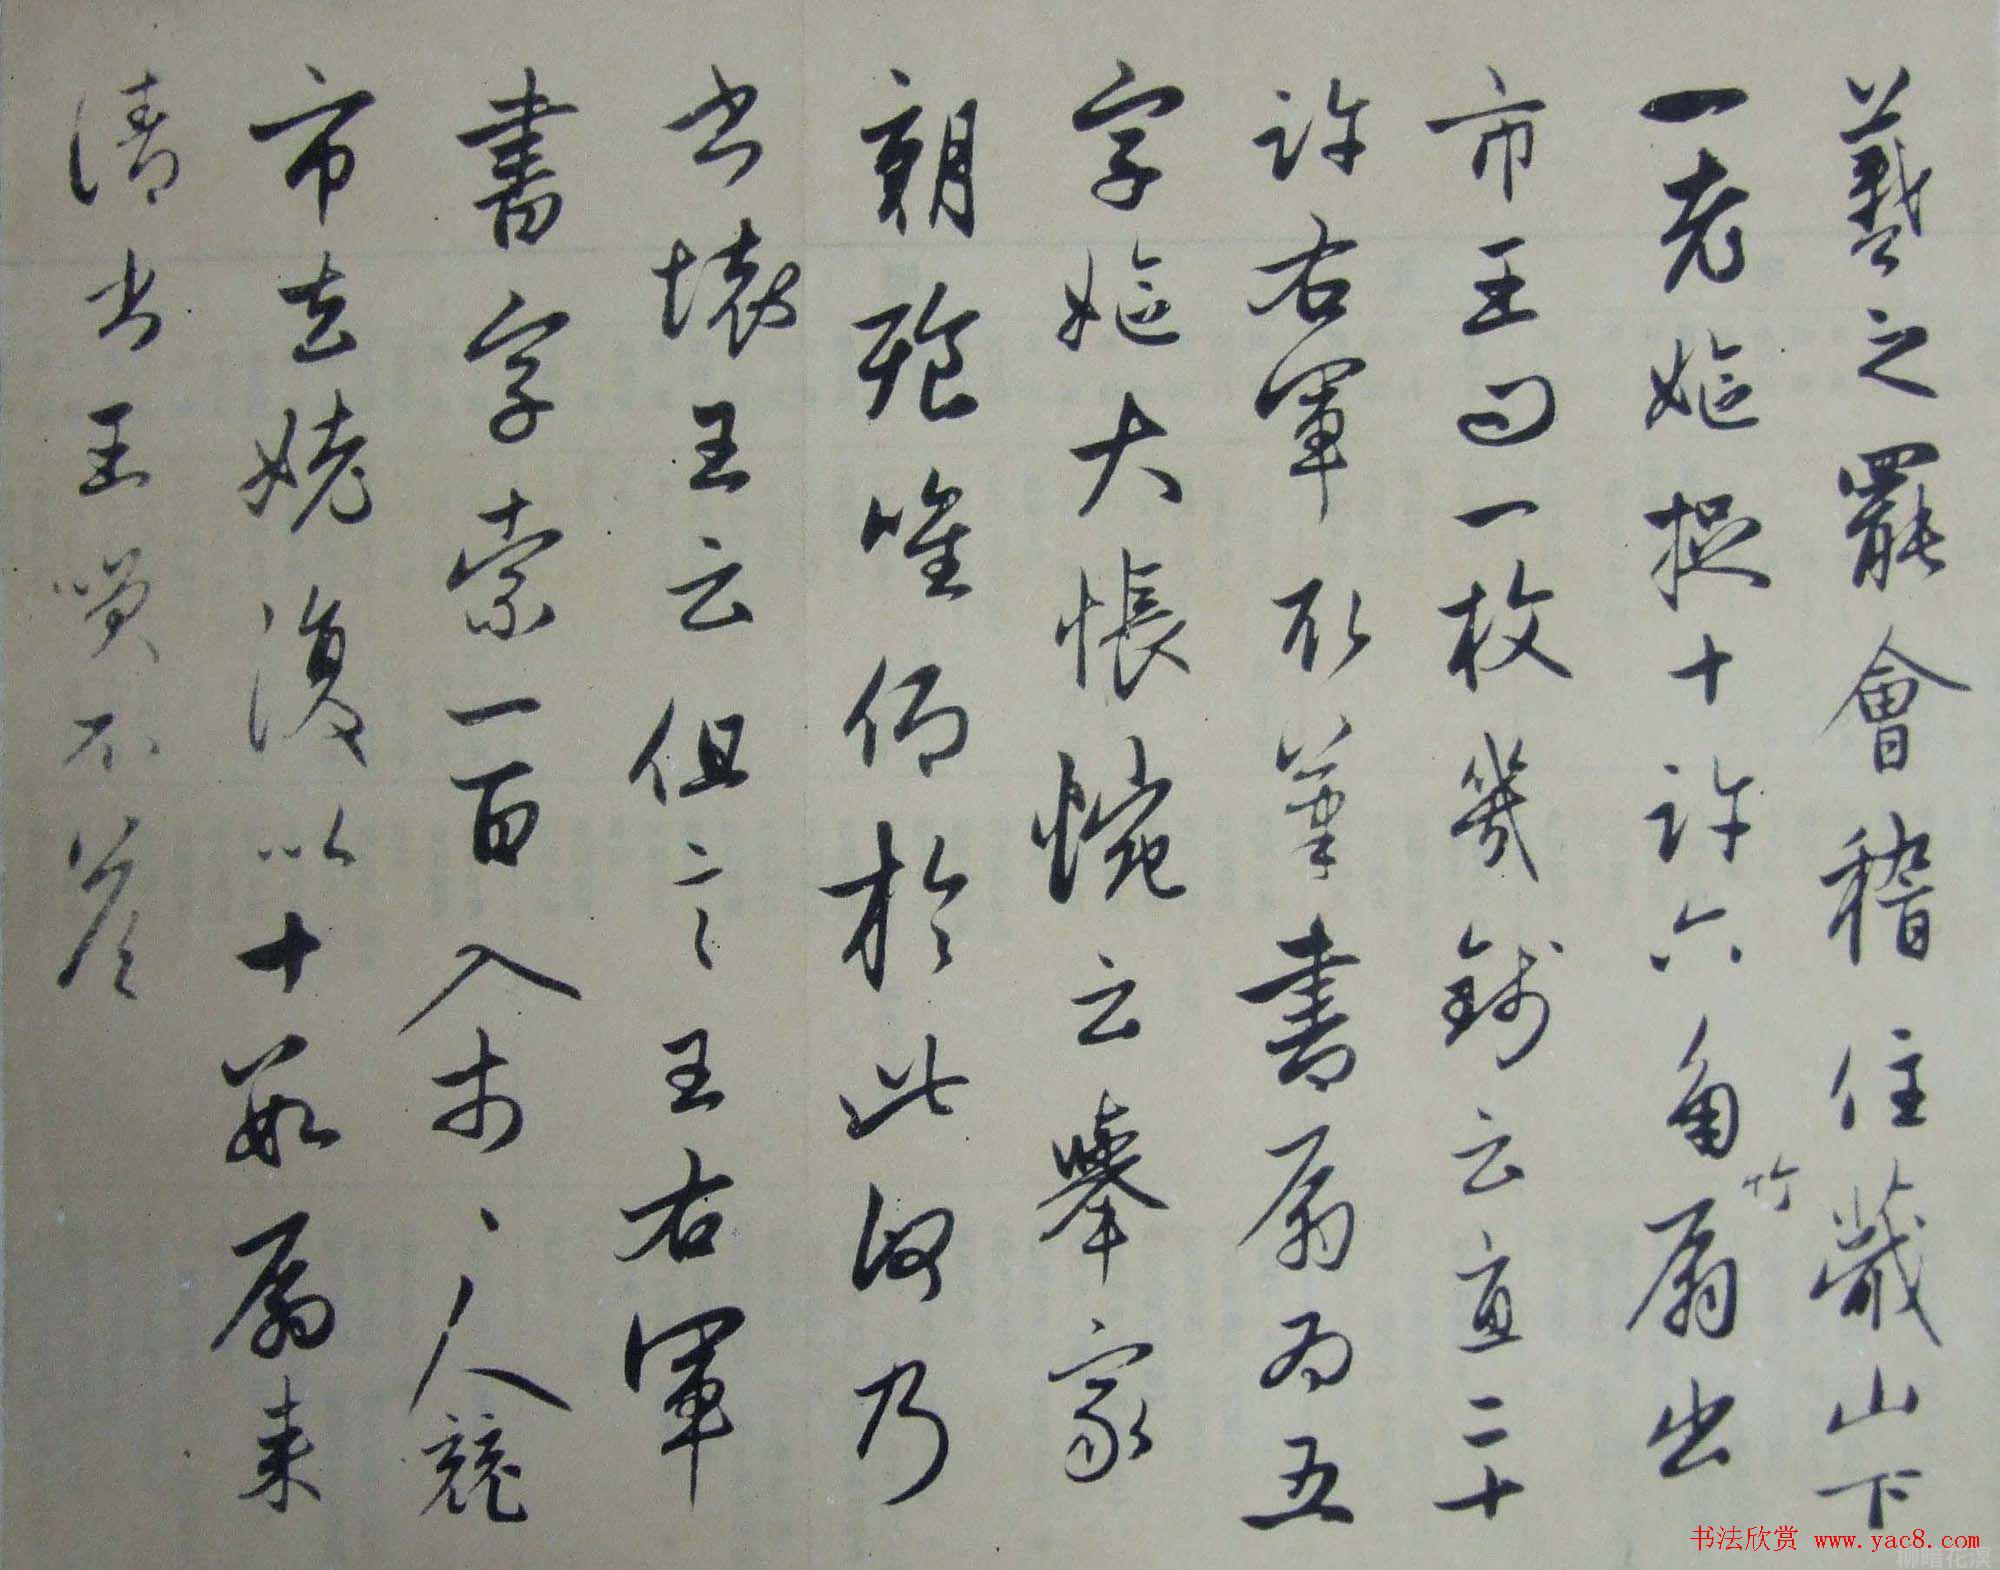 羲之罷會稽住蕺山下
一老嫗捉十許六角竹扇出
市王問一枚幾錢云直二十
許右軍取筆書扇為五
字嫗大悵惋云舉家
朝飡唯仰於此何乃
書壞王云但言王右軍
書字索一百入市市人競
市去姥復以十數扇来
請書王笑不答
书法欣赏 www.yac8.com
柳暗花溟